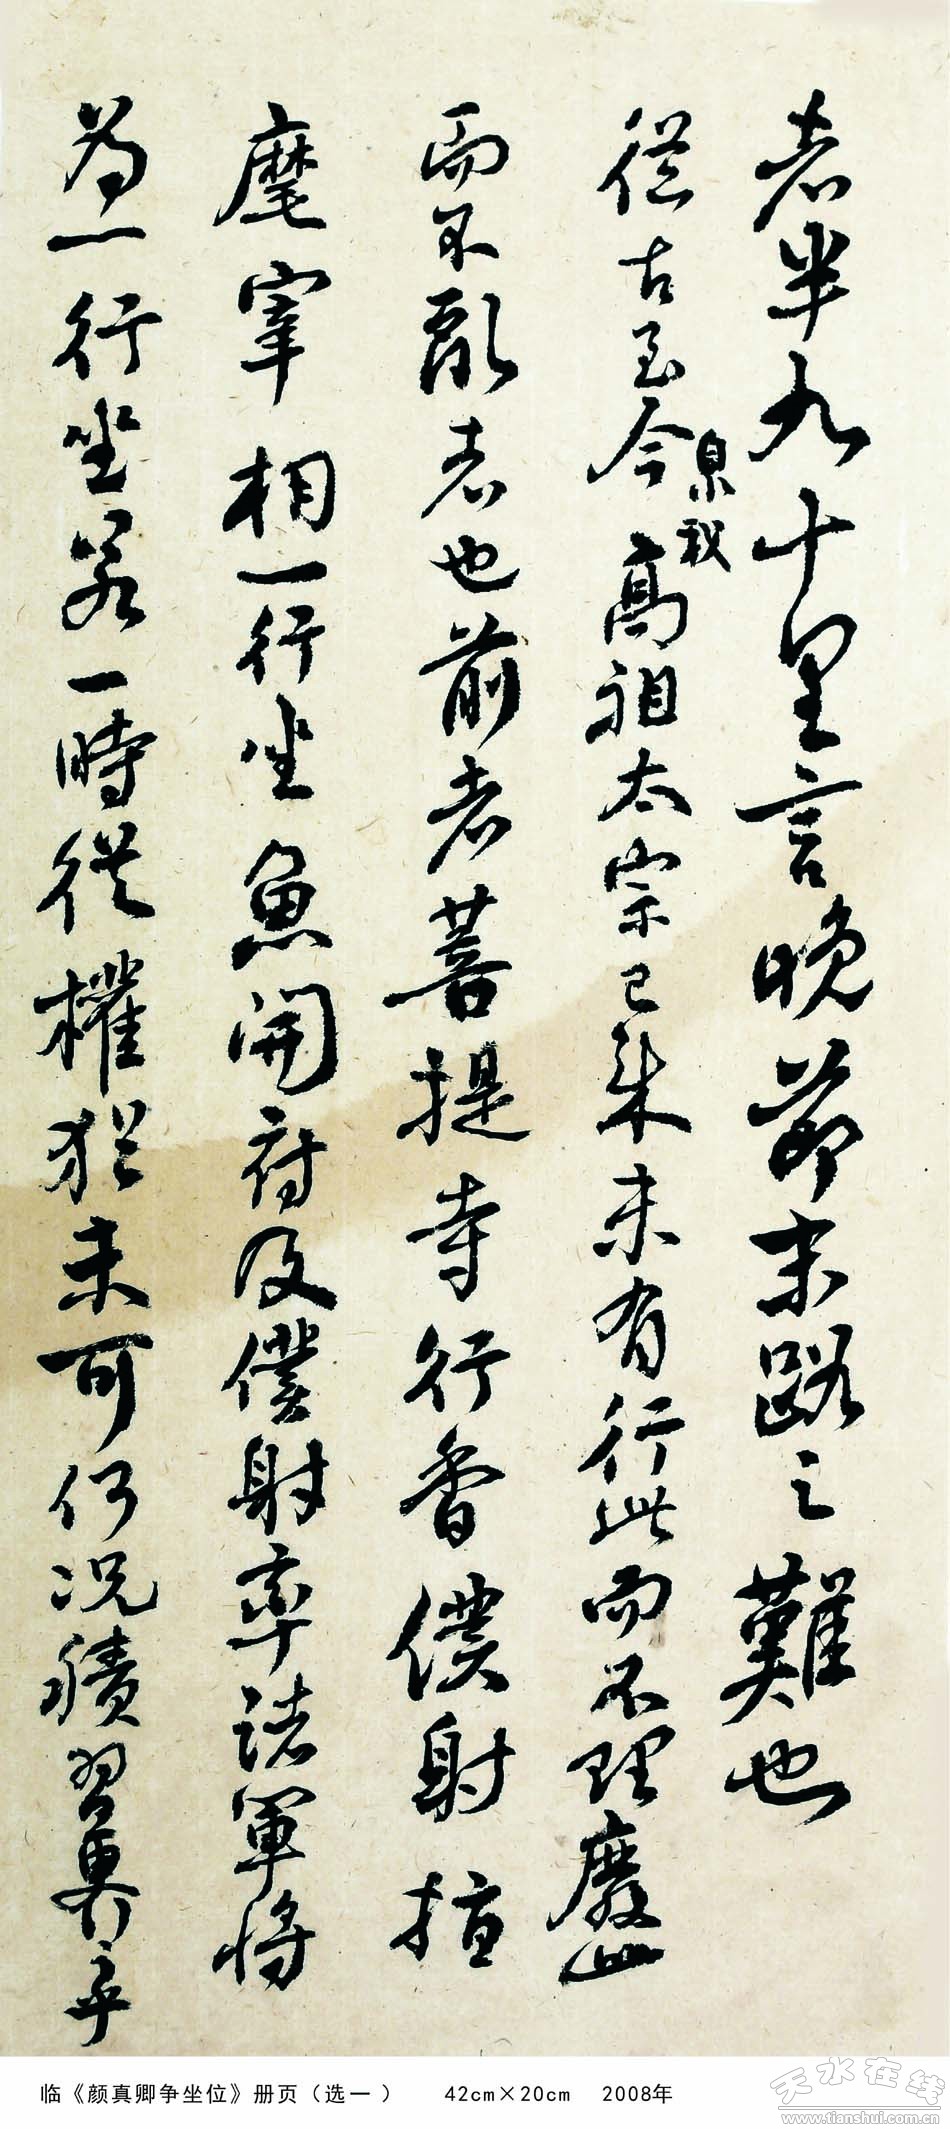 者半九十里言晚節末路之難也
從古至今
自泉我
高祖太宗已来未有行此而不理廢此
而不亂者也前者菩提寺行香僕射指
麾宰相一行坐魚開府及僕射率諸軍將
為一行坐若一時從權猶未可何况積習更行乎
临《颜真卿争坐位》册页（选一） 42cm×20cm 2008年
天水在线
www.tianshui.com.cn